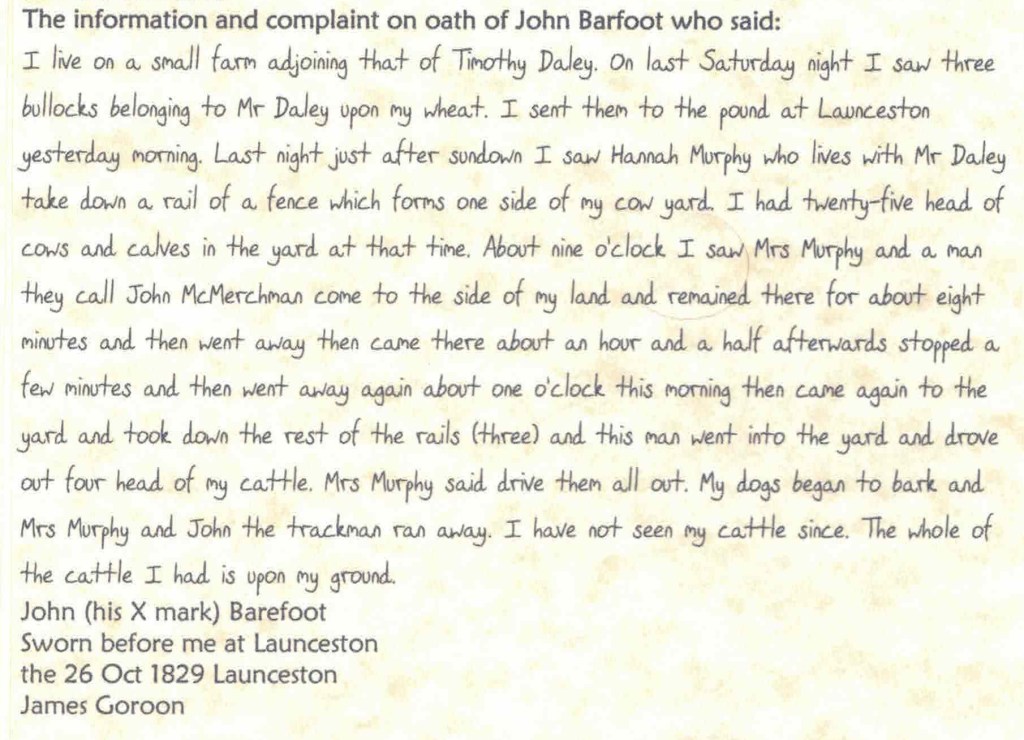 The information and complaint on oath of John Barfoot who said:
I live on a small farm adjoining that of Timothy Daley. On last Saturday night I saw three
bullocks belonging to Mr Daley upon my wheat. I sent them to the pound at Launceston
yesterday morning. Last night just after sundown I saw Hannah Murphy who lives with Mr Daley
take down a rail of a fence which forms one side of my cow yard. I had twenty-five head of
cows and calves in the yard at that time. About nine o'clock I saw Mrs Murphy and a man
they call John McMerchman come to the side of my land and remained there for about eight
minutes and then went away then came there about an hour and a half afterwards stopped a
few minutes and then went away again about one o'clock this morning then came again to the
yard and took down the rest of the rails (three) and this man went into the yard and drove
out four head of my cattle. Mrs Murphy said drive them all out. My dogs began to bark and
Mrs Murphy and John the trackman ran away. I have not seen my cattle since. The whole of
the cattle I had is upon my ground.
John (his X mark) Barefoot
Sworn before me at Launceston
the 26 Oct 1829 Launceston
James Goroon